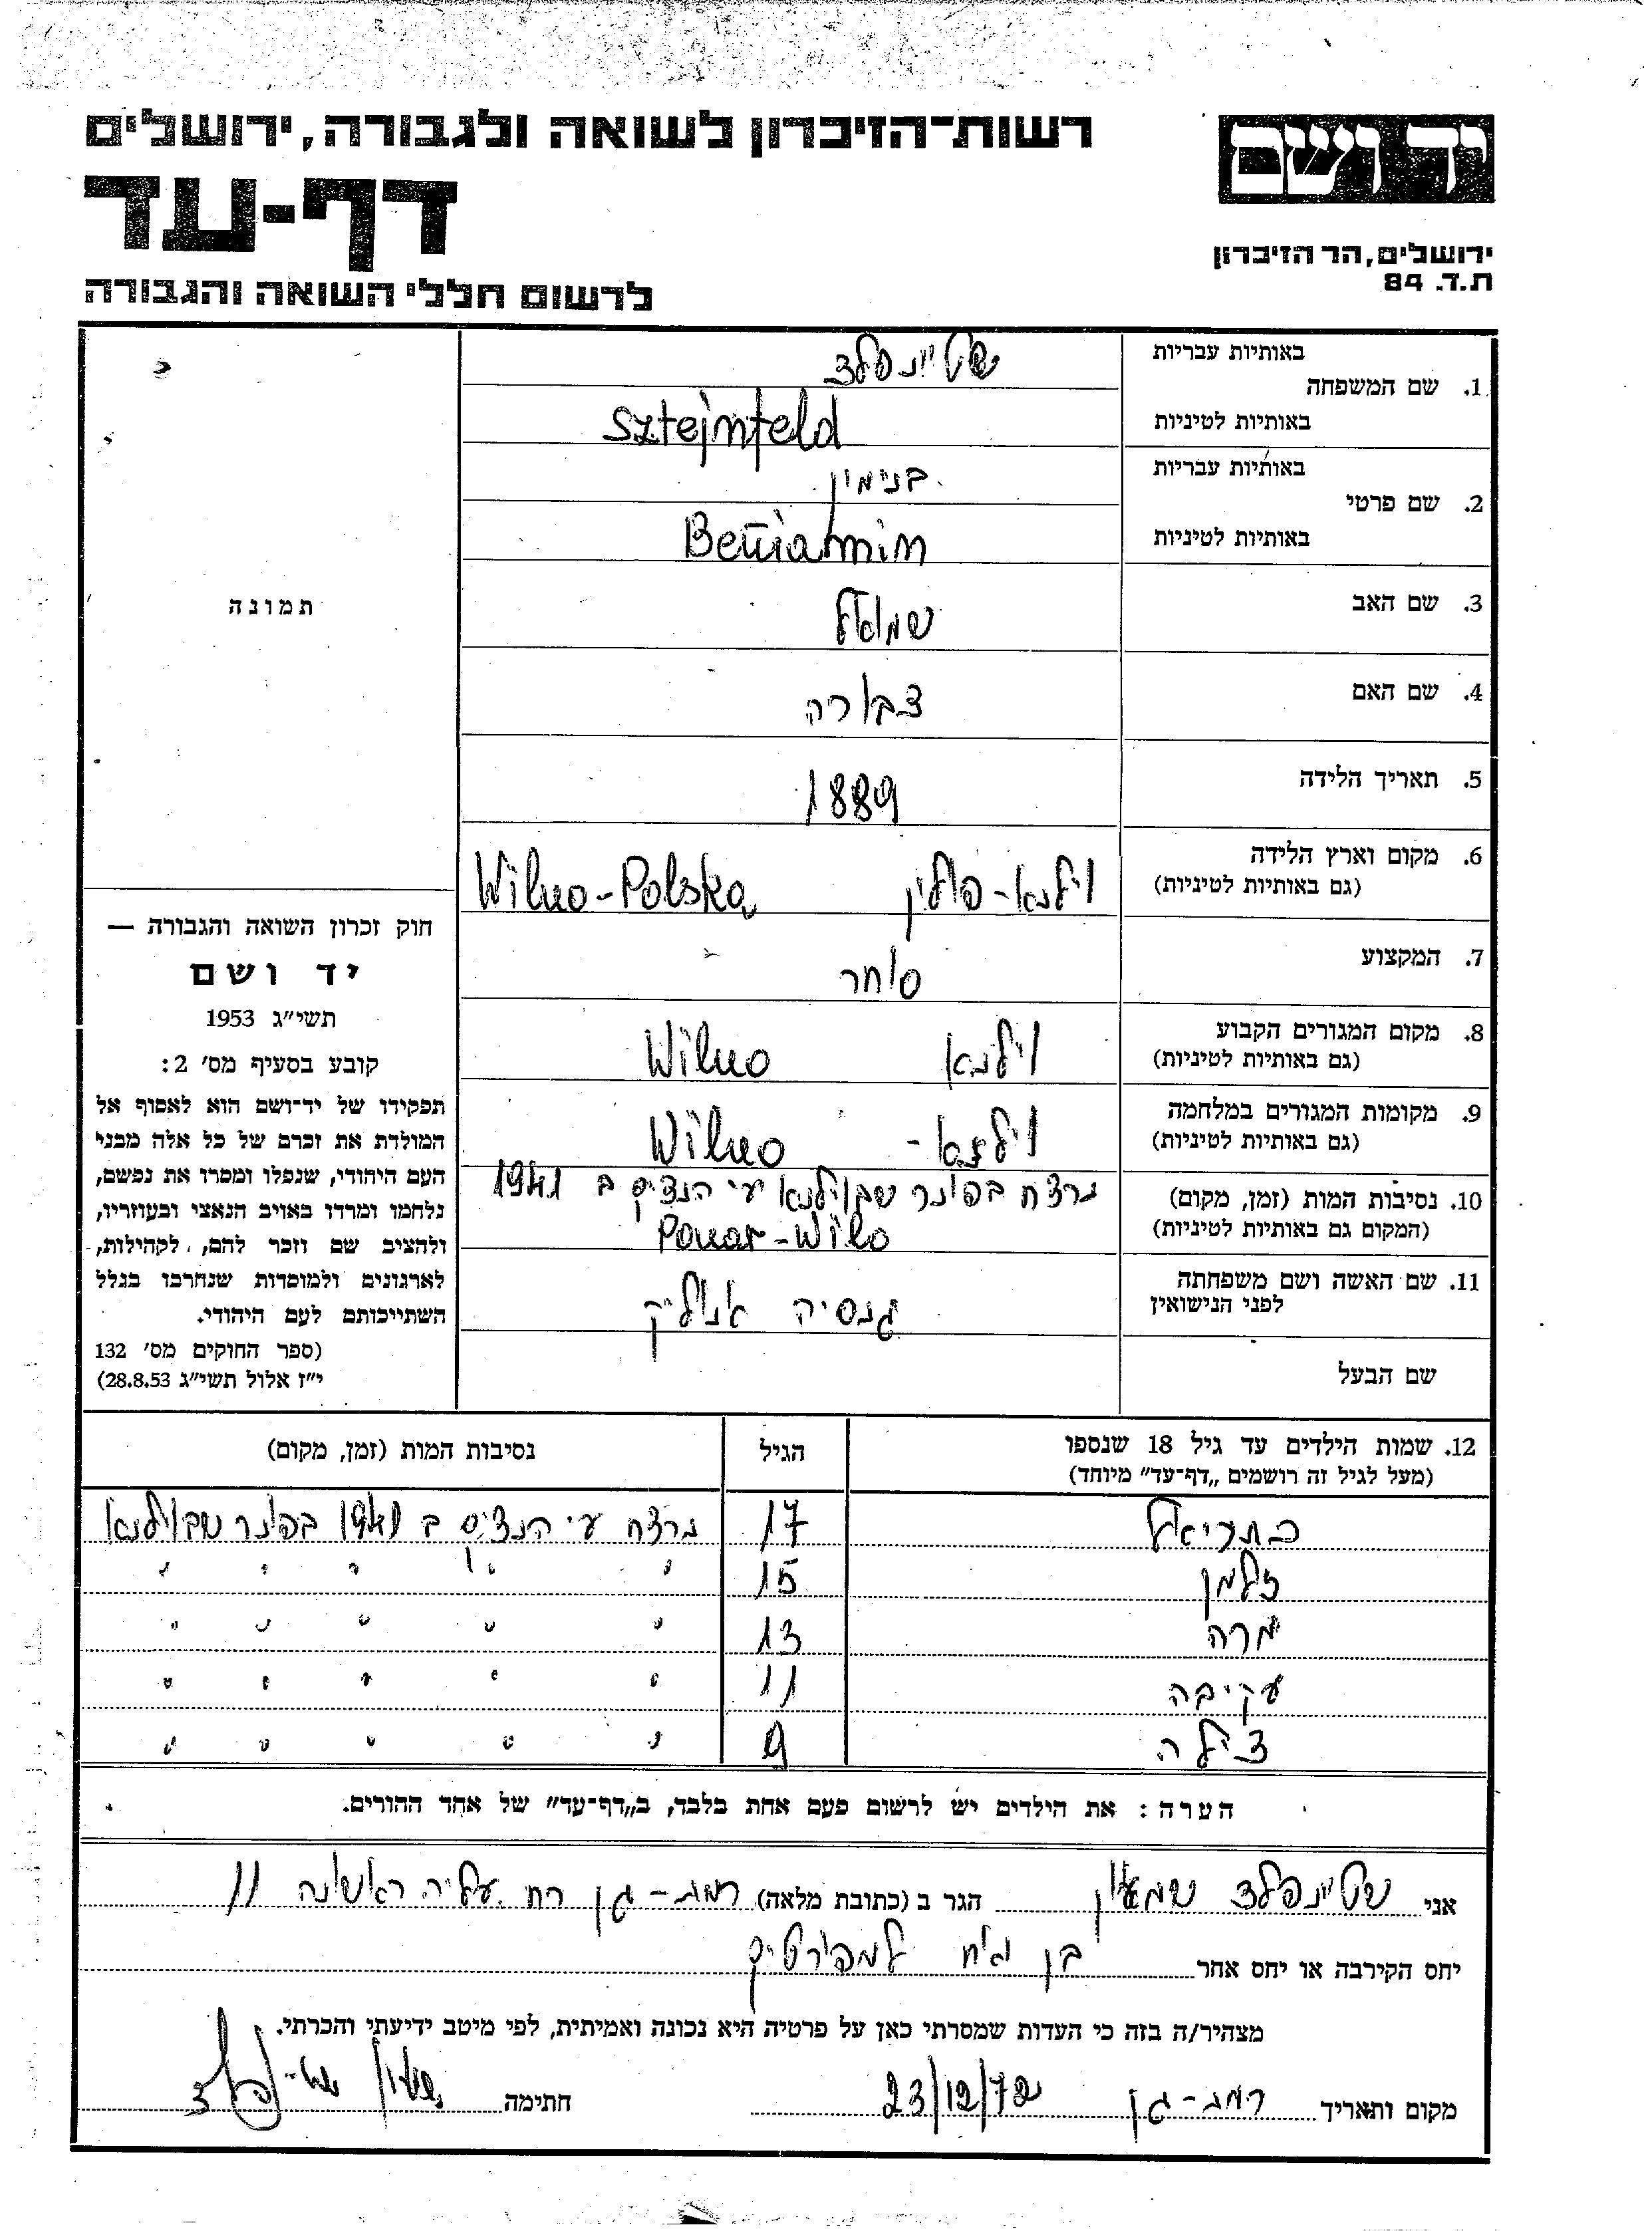 רשות־הזיכרון לשואה ולגבורה, ירושלים
יד ושם
דף-עד
ירושלים, הר הזיכרון
ת.ד. 84
לרשום חללי השואה והגבורה
באותיות עבריות
1. שם המשפחה
שטיינפלד
באותיות לטיניות
Sztejnfeld
באותיות עבריות
2. שם פרטי
בנימין
באותיות לטיניות
Beniamin
3. שם האב
שמואל
4. שם האם
דבורה
5. תאריך הלידה
1889
6. מקום וארץ הלידה
(גם באותיות לטיניות)
וילנא - פולין Wilno - Polska
7. המקצוע
סוחר
8. מקום המגורים הקבוע
(גם באותיות לטיניות)
וילנא Wilno
9. מקומות המגורים במלחמה
(גם באותיות לטיניות)
וילנא - Wilno
10. נסיבות המות (זמן, מקום)
(המקום גם באותיות לטיניות)
נרצח בפונר שבוילנא ע״י הנצים ב 1941
Ponar - Wilo
11. שם האשה ושם משפחתה
לפני הנישואין
גנסיה
שם הבעל
תמונה
חוק זכרון השואה והגבורה —
יד ושם
תשי״ג 1953
קובע בסעיף מס׳ 2:
תפקידו של יד־ושם הוא לאסוף אל
המולדת את זכרם של כל אלה מבני
העם היהודי, שנפלו ומסרו את נפשם,
נלחמו ומרדו באויב הנאצי ובעוזריו,
ולהציב שם וזכר להם, לקהילות,
לארגונים ולמוסדות שנחרבו בגלל
השתייכותם לעם היהודי.
(ספר החוקים מס׳ 132
י״ז אלול תשי״ג 28.8.53)
12. שמות הילדים עד גיל 18 שנספו
(מעל לגיל זה רושמים „דף־עד״ מיוחד)
הגיל
נסיבות המות (זמן, מקום)
כתריאל 17 נרצח ע״י הנצים ב 1941 בפונר שבוילנא
זלמן 15 " " " " "
מרה 13 " " " " "
עקיבה 11 " " " " "
צילה 9 " " " " "
הערה: את הילדים יש לרשום פעם אחת בלבד, ב„דף־עד״ של אחד ההורים.
אני שטיינפלד שמעון הגר ב (כתובת מלאה) רמת-גן רח. עליה ראשונה 11
יחס הקירבה או יחס אחר בן אח
מצהיר/ה בזה כי העדות שמסרתי כאן על פרטיה היא נכונה ואמיתית, לפי מיטב ידיעתי והכרתי.
מקום ותאריך רמת-גן 23/12/72 חתימה